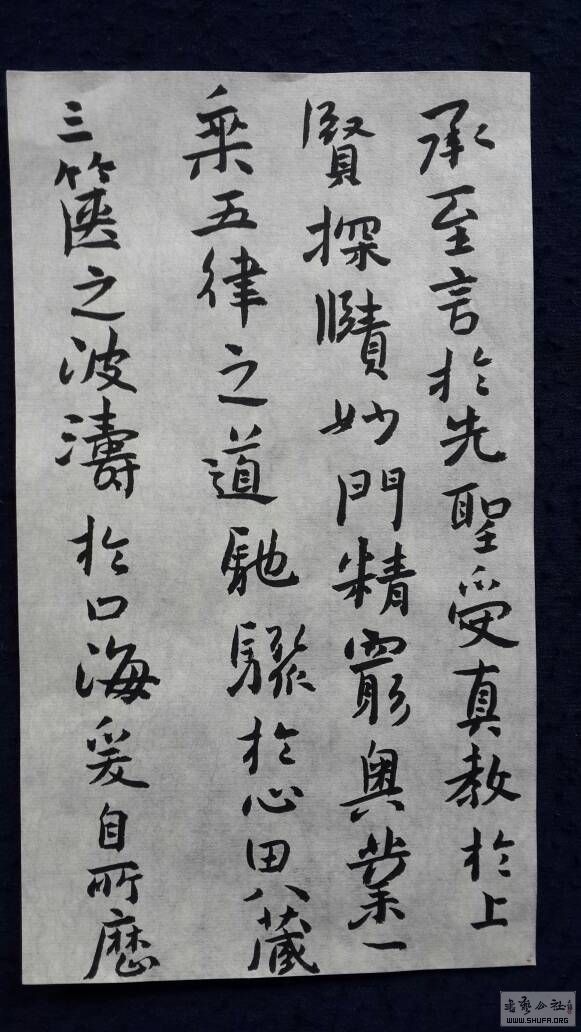 承至言於先聖受真教於上
賢探賾妙門精窮奧業一
乘五律之道馳驟於心田八藏
三篋之波濤於口海爰自所歷
WWW.SHUFA.ORG